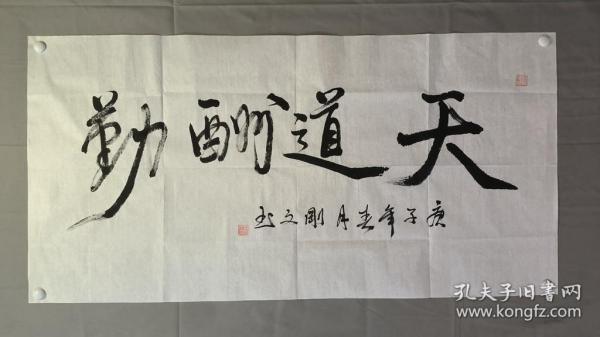 天道酬勤
庚子年春月刚之书
孔夫子旧书网
www.kongfz.com